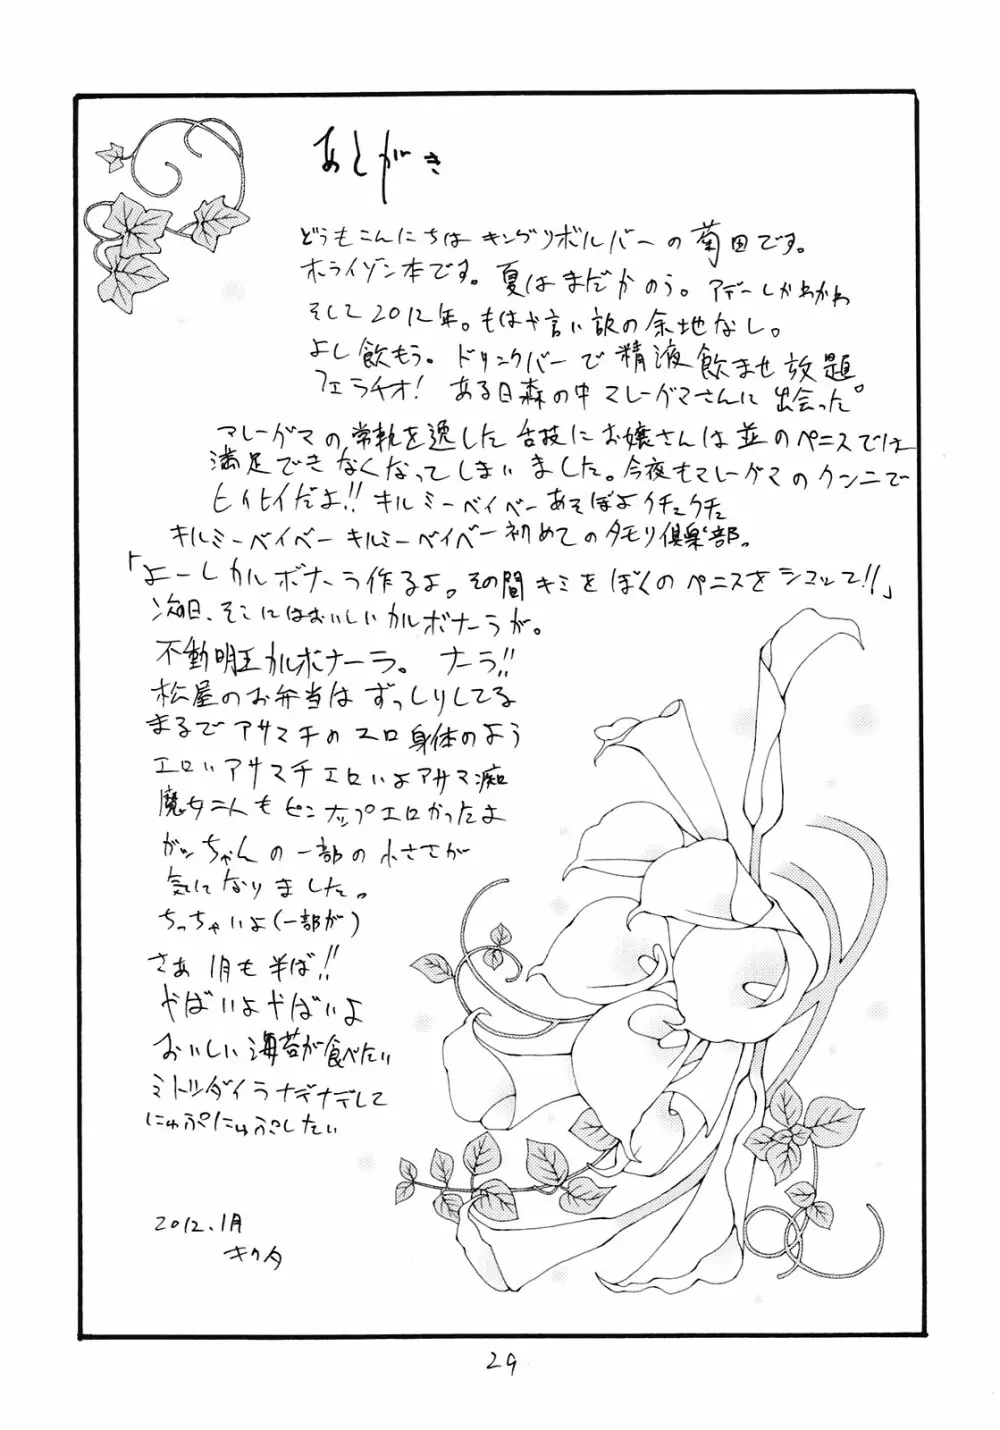 あとがき
どうもこんにちは キングリボルバーの菊田です。
ホライゾン本です。夏はまだかのう。アデーレかわかわ
そして2012年。もはや言い訳の余地なし。
よし飲もう。ドリンクバーで精液飲ませ放題
フェラチオ! ある日森の中マレーグマさんに出会った。
マレーグマの常軌を逸した舌技にお嬢さんは並のペニスでは
満足できなくなってしまいました。今夜もマレーグマのクンニで
ヒイヒイだよ!!キルミーベイベーあそぼよクチュクチュ
キルミーベイベーキルミーベイベー初めてのタモリ倶楽部。
「よーしカルボナーラ作るよ。その間キミをぼくのペニスをシコッて!!」
次の日、そこにはおいしいカルボナーラが。
不動明王カルボナーラ。 ナーラ!!
松屋のお弁当はずっしりしてる
まるでアサマチのエロ身体のよう
エロいアサマチエロいよアサマ痴
魔女二人もピンナップエロかったよ
がっちゃんの一部の小ささが
気になりました。
ちっちゃいよ(一部が)
さあ 1月も半ば!!
やばいよやばいよ
おいしい海苔が食べたい
ミトツダイラナデナデして
にゅぷにゅぷしたい
2012.1月
キクタ
29